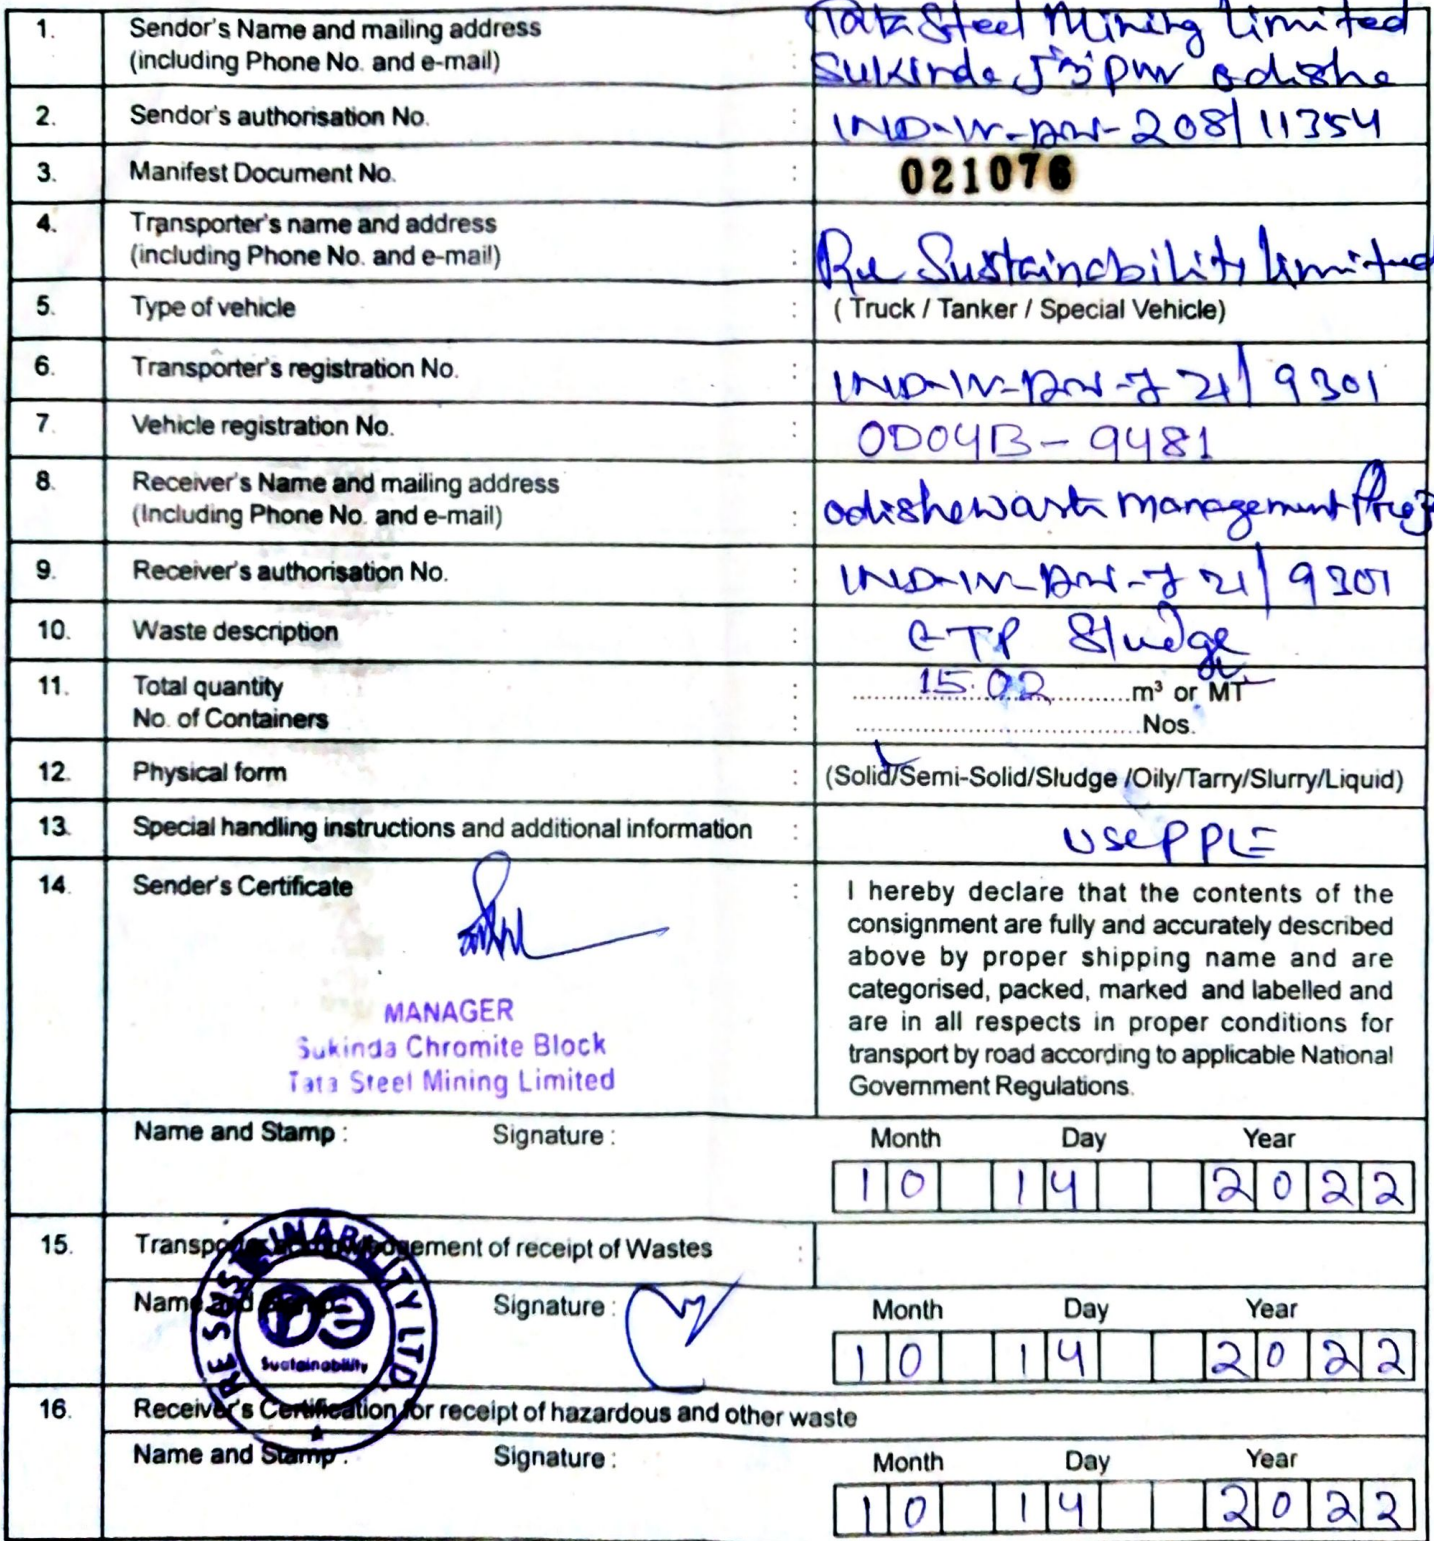 1. Sendor's Name and mailing address : Tata Steel Mining Limited
(including Phone No. and e-mail) Sukinda Jajpur odisha
2. Sendor's authorisation No. : IND-IV-HW-208/11354
3. Manifest Document No. : 021076
4. Transporter's name and address
(including Phone No. and e-mail) : Re Sustainability limited
5. Type of vehicle : ( Truck / Tanker / Special Vehicle)
6. Transporter's registration No. : IND-IV-HW-721/9301
7. Vehicle registration No. : OD04B-9481
8. Receiver's Name and mailing address
(Including Phone No. and e-mail) : odisha waste management Proj
9. Receiver's authorisation No. : IND-IV-HW-721/9301
10. Waste description : ETP Sludge
11. Total quantity : 15.02 m³ or MT
No. of Containers : Nos.
12. Physical form : (Solid/Semi-Solid/Sludge /Oily/Tarry/Slurry/Liquid)
13. Special handling instructions and additional information : Use PPE
14. Sender's Certificate : I hereby declare that the contents of the
consignment are fully and accurately described
above by proper shipping name and are
categorised, packed, marked and labelled and
are in all respects in proper conditions for
transport by road according to applicable National
Government Regulations.
MANAGER
Sukinda Chromite Block
Tata Steel Mining Limited
Name and Stamp : Signature : Month Day Year
10 14 2022
15. Transporter acknowledgement of receipt of Wastes :
Name and Stamp : Signature : Month Day Year
10 14 2022
RE SUSTAINABILITY LTD.
Sustainability
16. Receiver's Certification for receipt of hazardous and other waste
Name and Stamp : Signature : Month Day Year
10 14 2022